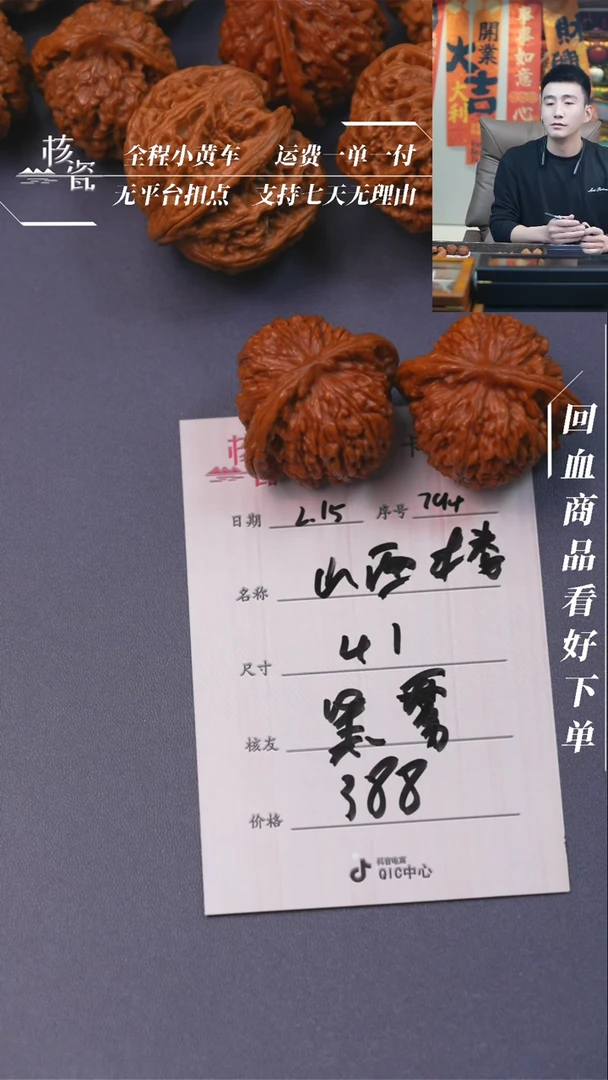 核瓷
全程小黄车 运费一单一付
无平台扣点 支持七天无理由
開業
大吉
大利
事事如意
心
財
回血商品看好下单
日期 2.15 序号 794
名称 山西楼
尺寸 41
核友
价格 388
抖音电商
QIC中心